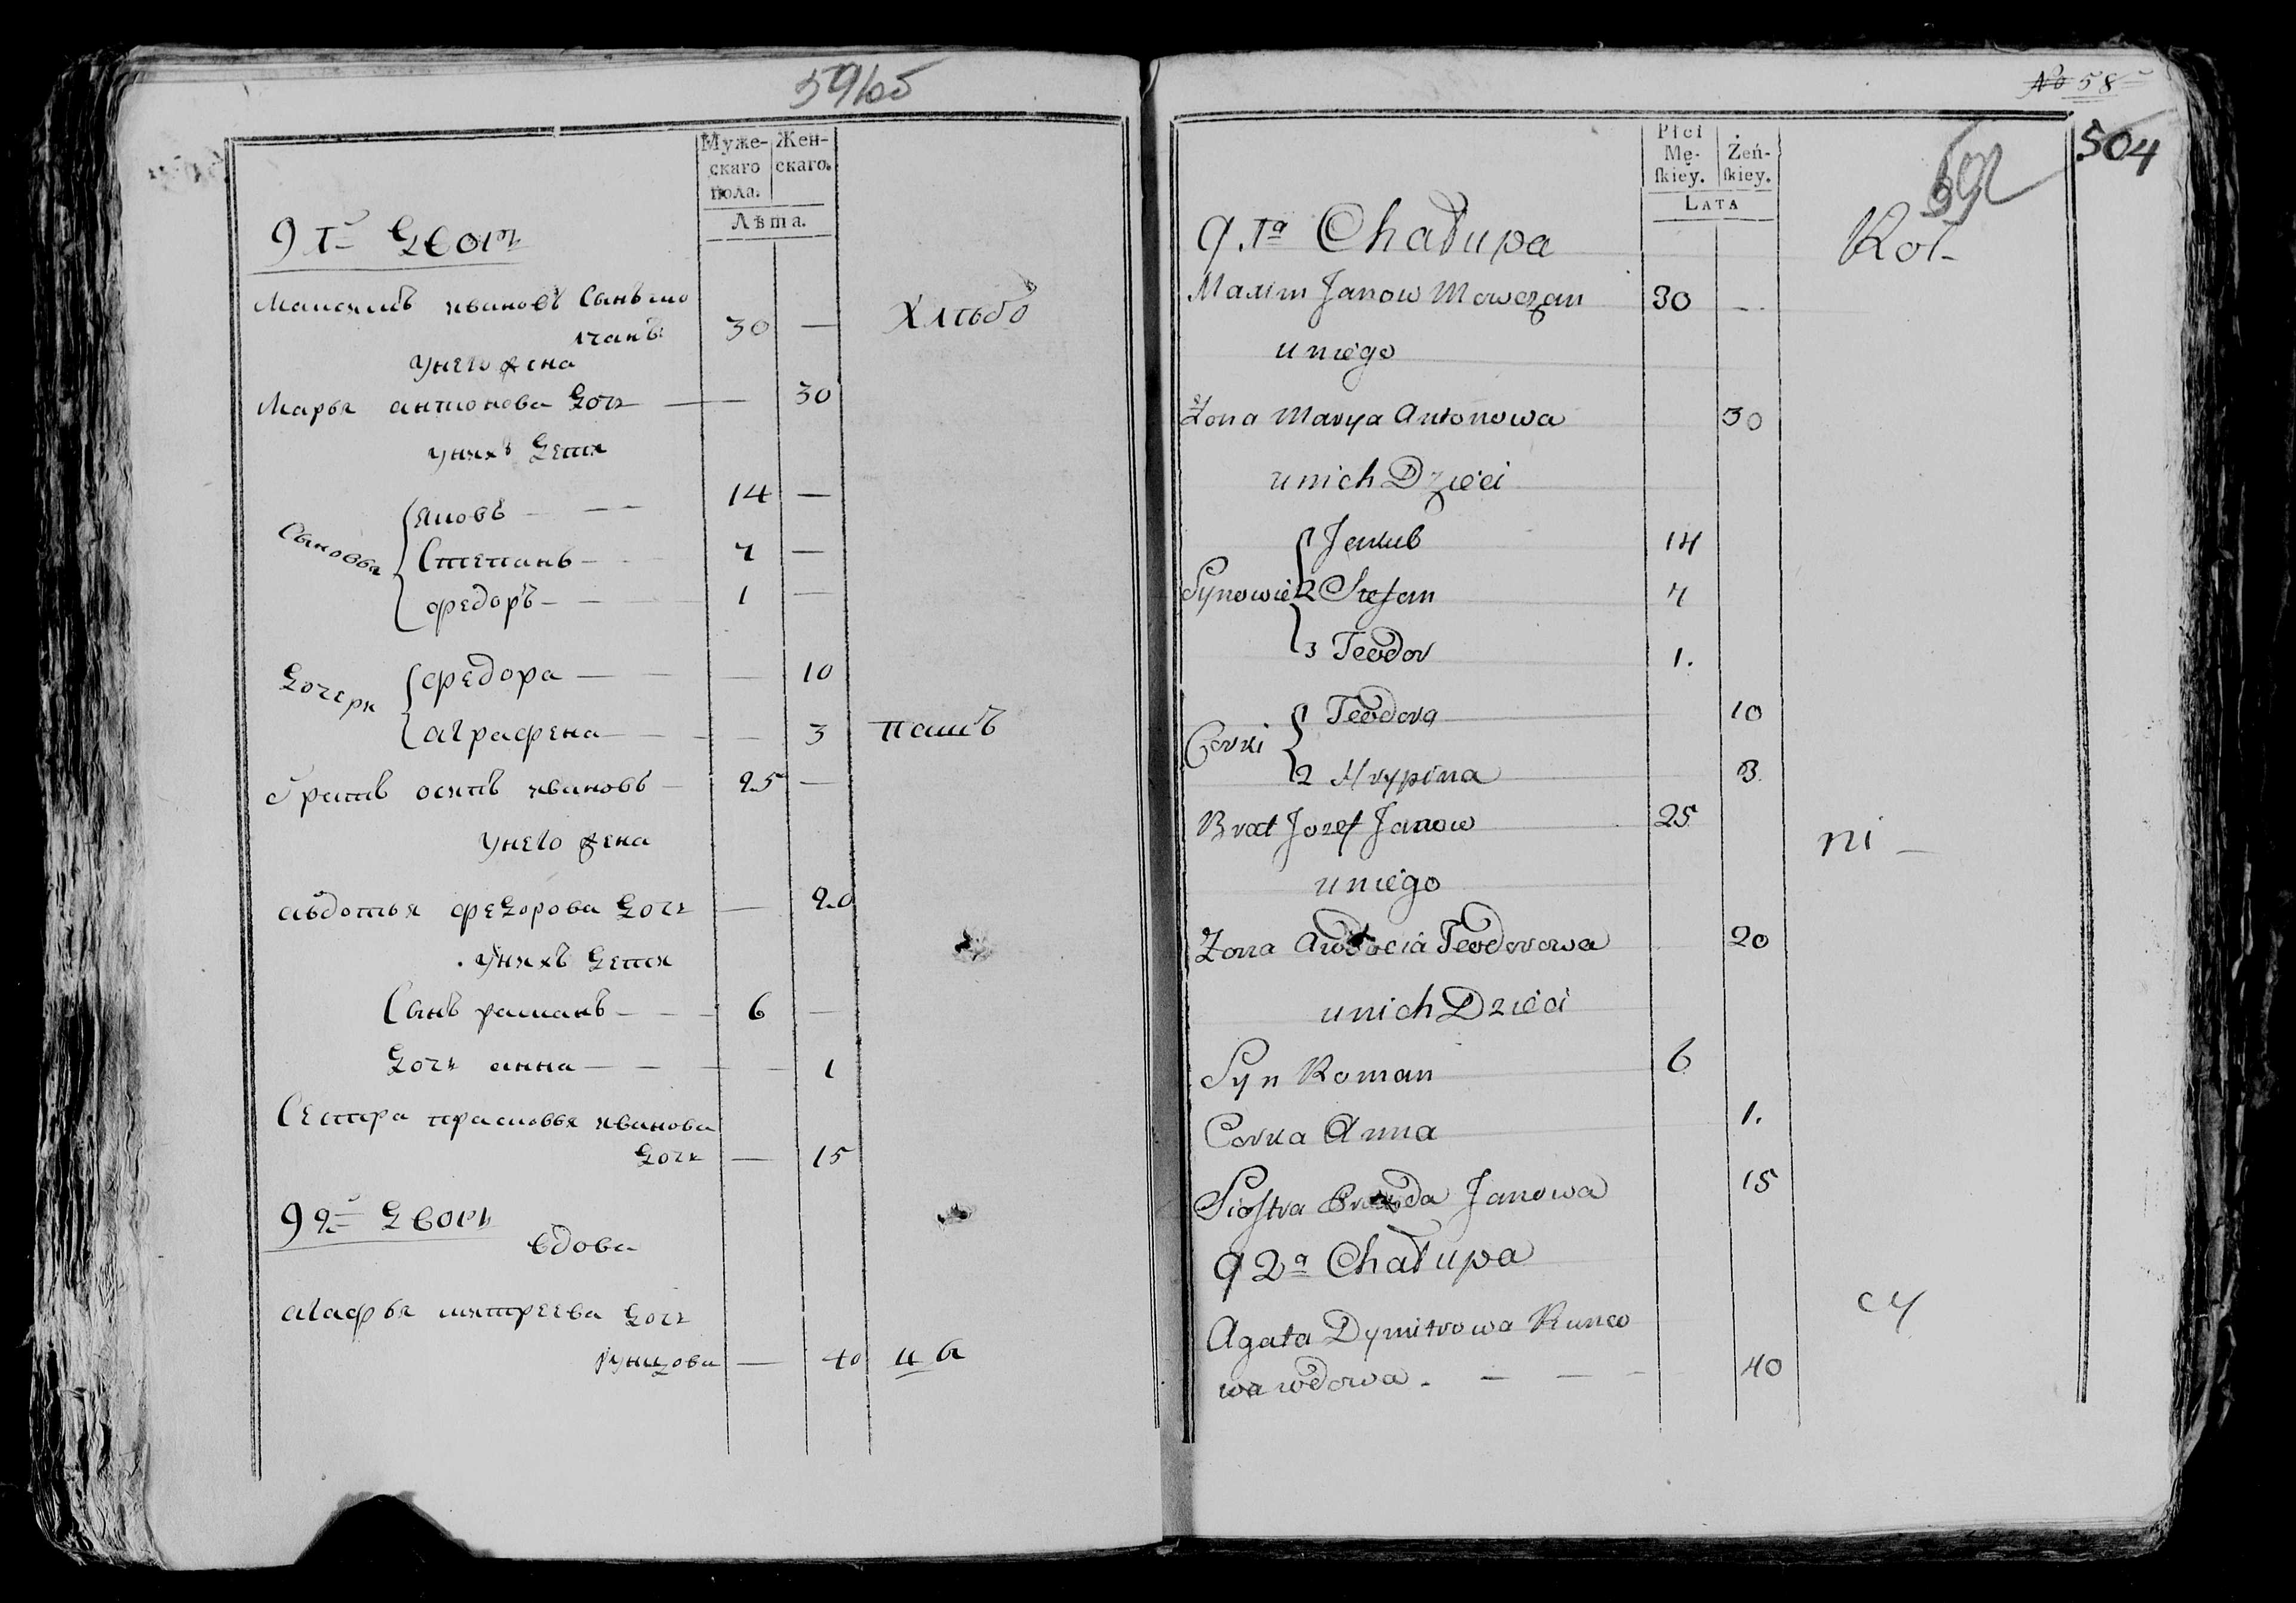 Муже- Жен-
скаго скаго.
пола.
Лѣта.
91й Дворъ
Максимъ Ивановъ Сынъ мо
вчанъ 30 — Хлѣбо
У него жена
Марья антонова Дочь — — 30
У нихъ Дети
Сыновья
Яковъ — — 14 —
Степанъ — 4 —
Федоръ — — 1 —
Дочери
Федора — — — 10
аграфена — — — 3 пашъ
братъ осипъ ивановъ — 25 —
У него жена
авдотья федорова Дочь — 20
У нихъ Дети
Сынъ раманъ — — 6 —
Дочь анна — — — 1
Сестра прасковья иванова
Дочь — 15
92й Дворъ
вдова
агафья митреева Дочь
Рунцова — 40 цы
No 58
504
Płci
Mę- Żeń-
ſkiey. ſkiey.
LATA
91a Chałupa Rol-
Maxim Janow Mowczan 30 —
u niego
Żona Marya Antonowa 30
u nich Dzieci
Synowie
1 Jakub 14
2 Stefan 4
3 Teodor 1.
Corki
1 Teodora 10
2 Hrypina 3
Brat Jozef Janow 25 ni —
u niego
Żona Awdocia Teodorowa 20
u nich Dzieci
Syn Roman 6
Corka Anna 1.
Siostra Janowa 15
92a Chałupa
Agata Dymitrowa Runco cy
wa wdowa. — — — 40